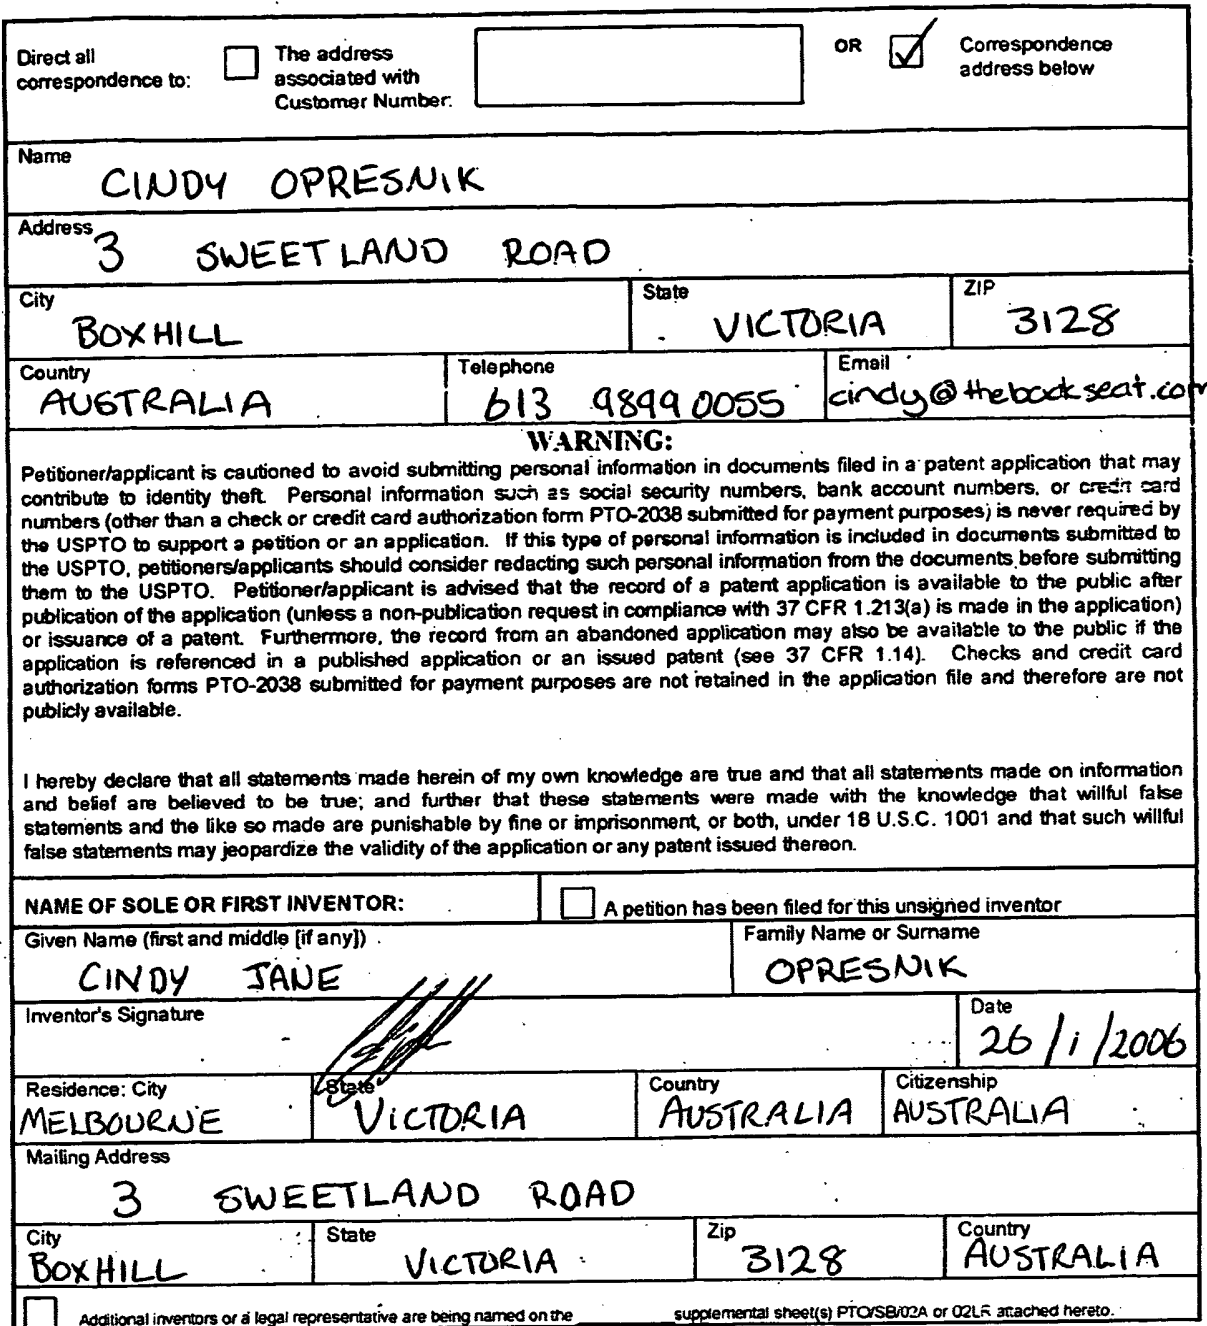 Direct all
correspondence to:
The address
associated with
Customer Number:
OR
Correspondence
address below
Name
CINDY OPRESNIK
Address
3 SWEETLAND ROAD
City
State
ZIP
BOXHILL
VICTORIA
3128
Country
Telephone
Email
AUSTRALIA
613 9899 0055
cindy@thebackseat.com
WARNING:
Petitioner/applicant is cautioned to avoid submitting personal information in documents filed in a patent application that may
contribute to identity theft. Personal information such as social security numbers, bank account numbers, or credit card
numbers (other than a check or credit card authorization form PTO-2038 submitted for payment purposes) is never required by
the USPTO to support a petition or an application. If this type of personal information is included in documents submitted to
the USPTO, petitioners/applicants should consider redacting such personal information from the documents before submitting
them to the USPTO. Petitioner/applicant is advised that the record of a patent application is available to the public after
publication of the application (unless a non-publication request in compliance with 37 CFR 1.213(a) is made in the application)
or issuance of a patent. Furthermore, the record from an abandoned application may also be available to the public if the
application is referenced in a published application or an issued patent (see 37 CFR 1.14). Checks and credit card
authorization forms PTO-2038 submitted for payment purposes are not retained in the application file and therefore are not
publicly available.
I hereby declare that all statements made herein of my own knowledge are true and that all statements made on information
and belief are believed to be true; and further that these statements were made with the knowledge that willful false
statements and the like so made are punishable by fine or imprisonment, or both, under 18 U.S.C. 1001 and that such willful
false statements may jeopardize the validity of the application or any patent issued thereon.
NAME OF SOLE OR FIRST INVENTOR:
A petition has been filed for this unsigned inventor
Given Name (first and middle [if any])
Family Name or Surname
CINDY JANE
OPRESNIK
Inventor's Signature
Date
26/1/2006
Residence: City
State
Country
Citizenship
MELBOURNE
VICTORIA
AUSTRALIA
AUSTRALIA
Mailing Address
3 SWEETLAND ROAD
City
State
Zip
Country
BOXHILL
VICTORIA
3128
AUSTRALIA
Additional inventors or a legal representative are being named on the supplemental sheet(s) PTO/SB/02A or 02LR attached hereto.